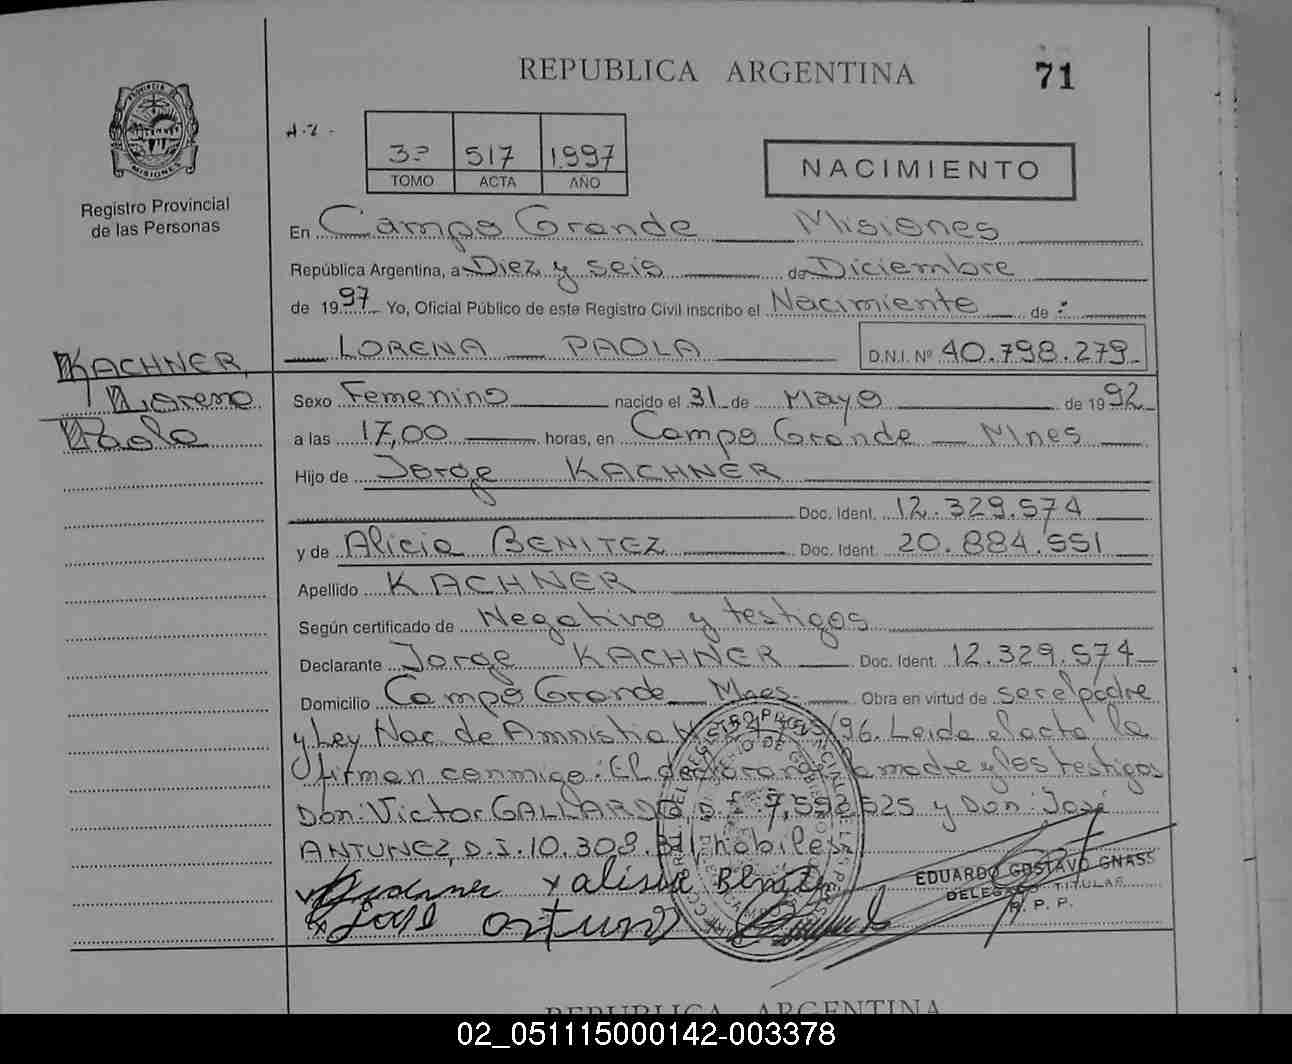 REPUBLICA ARGENTINA
71
3º 517 1997
TOMO ACTA AÑO
NACIMIENTO
PROVINCIA DE MISIONES
Registro Provincial
de las Personas
En Campo Grande Misiones
República Argentina, a Diez y seis de Diciembre
de 1997 Yo, Oficial Público de este Registro Civil inscribo el Nacimiento de :
LORENA PAOLA D.N.I. Nº 40.798.279
KACHNER,
Lorena
Paola
Sexo Femenino nacido el 31 de Mayo de 1992
a las 17,00 horas, en Campo Grande Mnes
Hijo de Jorge KACHNER
Doc. Ident. 12.329.574
y de Alicia BENITEZ Doc. Ident. 20.884.551
Apellido KACHNER
Según certificado de Negativo y testigos
Declarante Jorge KACHNER Doc. Ident. 12.329.574
Domicilio Campo Grande Mnes. Obra en virtud de ser el padre
y Ley Nac. de Amnistia /96. Leida el acta la
firman conmigo: El declarante la madre y los testigos
Don: Victor GALLARDO, D. 7,592525 y Don: José
ANTUNEZ, D.I. 10.308. habiles
EDUARDO GUSTAVO GNASS
DELEGADO TITULAR
R. P. P.
REPUBLICA ARGENTINA
02_051115000142-003378